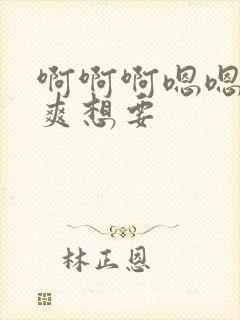 啊啊啊嗯嗯
爽想要
林正恩